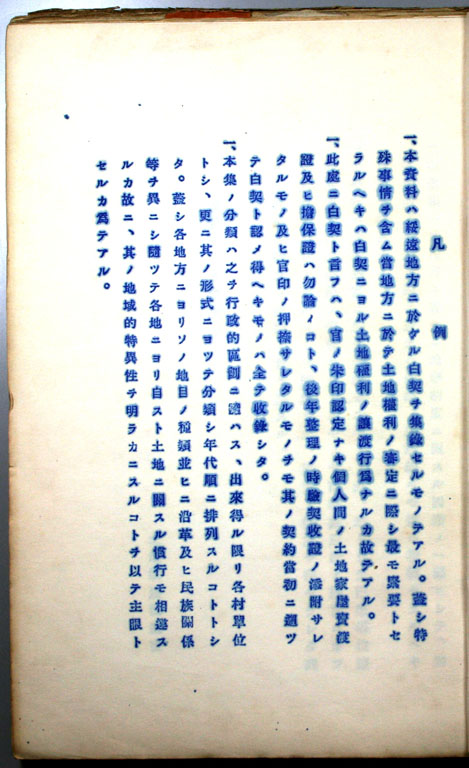 凡例
一、本資料ハ綏遠地方ニ於ケル白契ヲ集錄セルモノテアル。蓋シ特
殊事情ヲ含ム當地方ニ於テ土地權利ノ審定ニ際シ最モ需要トセ
ラルヘキハ白契ニヨル土地權利ノ讓渡行爲ナルカ故テアル。
一、此處ニ白契ト言フハ、官ノ朱印認定ナキ個人間ノ土地家屋賣渡
證及ヒ擔保證ハ勿論ノコト、後年整理ノ時驗契收證ノ添附サレ
タルモノ及ヒ官印ノ押捺サレタルモノヲモ其ノ契約當初ニ遡ツ
テ白契ト認メ得ヘキモノハ全テ收錄シタ。
一、本集ノ分類ハ之ヲ行政的區劃ニ據ハス、出來得ル限リ各村單位
トシ、更ニ其ノ形式ニヨツテ分類シ年代順ニ排列スルコトトシ
タ。蓋シ各地方ニヨリソノ地目ノ種類並ヒニ沿革及ヒ民族關係
等ヲ異ニシ隨ツテ各地ニヨリ自スト土地ニ關スル慣行モ相違ス
ルカ故ニ、其ノ地域的特異性ヲ明ラカニスルコトヲ以テ主眼ト
セルカ爲テアル。